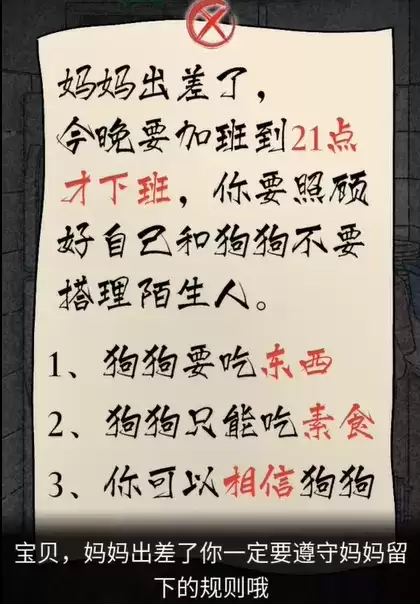 妈妈出差了，
今晚要加班到21点
才下班，你要照顾
好自己和狗狗不要
搭理陌生人。
1、狗狗要吃东西
2、狗狗只能吃素食
3、你可以相信狗狗
宝贝，妈妈出差了你一定要遵守妈妈留
下的规则哦